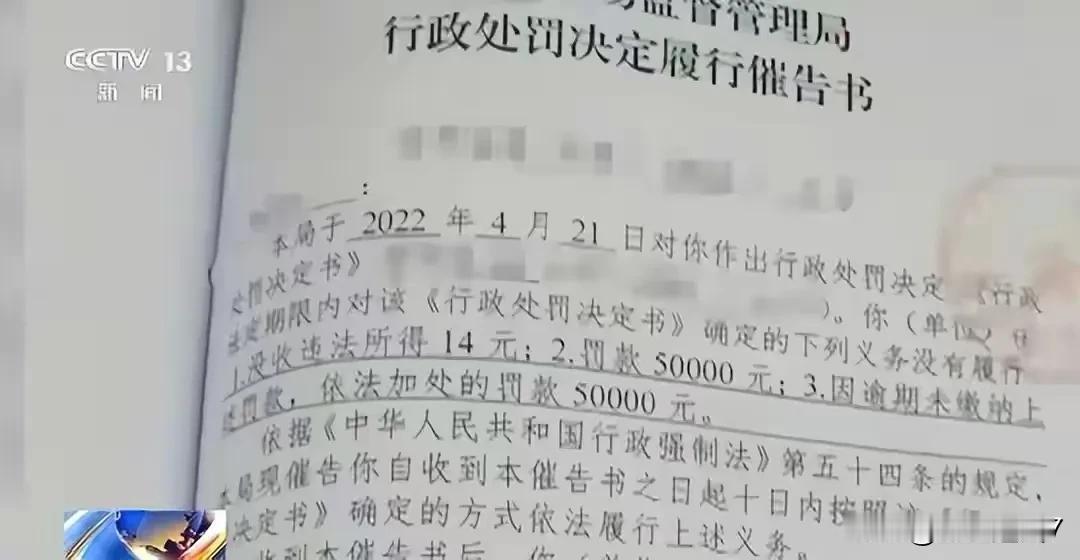 CCTV 13
新闻
监督管理局
行政处罚决定履行催告书
:
本局于 2022 年 4 月 21 日对你作出行政处罚决定 《行政
处罚决定书》 )。你（单位）在
法定期限内对该《行政处罚决定书》确定的下列义务没有履行
1.没收违法所得 14 元；2.罚款 50000 元；3.因逾期未缴纳上
述罚款，依法加处的罚款 50000 元。
依据《中华人民共和国行政强制法》第五十四条的规定，
本局现催告你自收到本催告书之日起十日内按照
决定书》确定的方式依法履行上述义务。
收到本催告书后，你（单